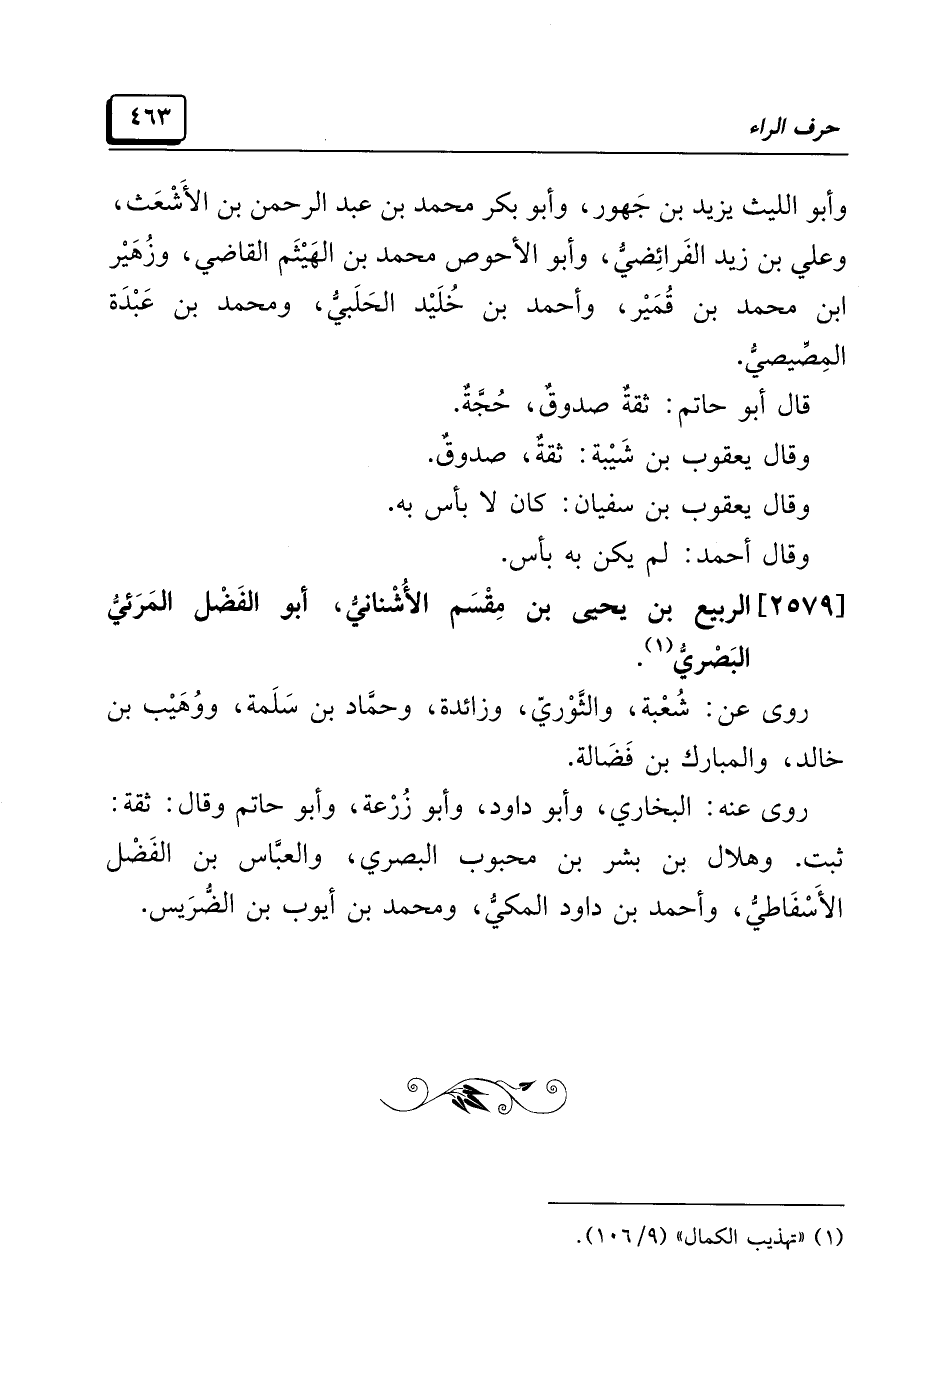 حرف الراء
٤٦٣
وأبو الليث يزيد بن جَهور، وأبو بكر محمد بن عبد الرحمن بن الأَشْعَث،
وعلي بن زيد الفَرائِضيُّ، وأبو الأحوص محمد بن الهَيْثَم القاضي، وزُهَيْر
ابن محمد بن قُمَيْر، وأحمد بن خُلَيْد الحَلَبيُّ، ومحمد بن عَبْدَة
المِصِّيصيُّ.
قال أبو حاتم: ثقةٌ صدوقٌ، حُجَّةٌ.
وقال يعقوب بن شَيْبة: ثقةٌ، صدوقٌ.
وقال يعقوب بن سفيان: كان لا بأس به.
وقال أحمد: لم يكن به بأس.
[٢٥٧٩] الربيع بن يحيى بن مِقْسَم الأُشْنانيُّ، أبو الفَضْل المَرَئيُّ
البَصْريُّ(١).
روى عن: شُعْبة، والثَّوْريّ، وزائدة، وحمَّاد بن سَلَمة، ووُهَيْب بن
خالد، والمبارك بن فَضَالة.
روى عنه: البخاري، وأبو داود، وأبو زُرْعة، وأبو حاتم وقال: ثقة:
ثبت. وهلال بن بشر بن محبوب البصري، والعبَّاس بن الفَضْل
الأَسْفَاطيُّ، وأحمد بن داود المكيُّ، ومحمد بن أيوب بن الضُّرَيس.
(١) «تهذيب الكمال» (٩/ ١٠٦).